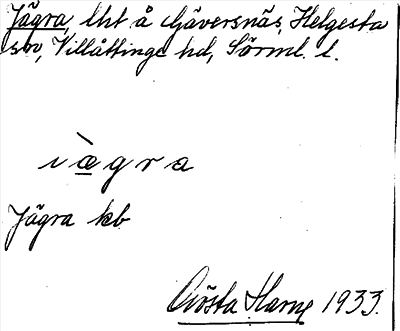 Jägra, lht å Gäversnäs, Helgesta
sn, Villåttinge hd, Sörml. l.
ìægra
Jägra kb
Gösta Harne 1933.